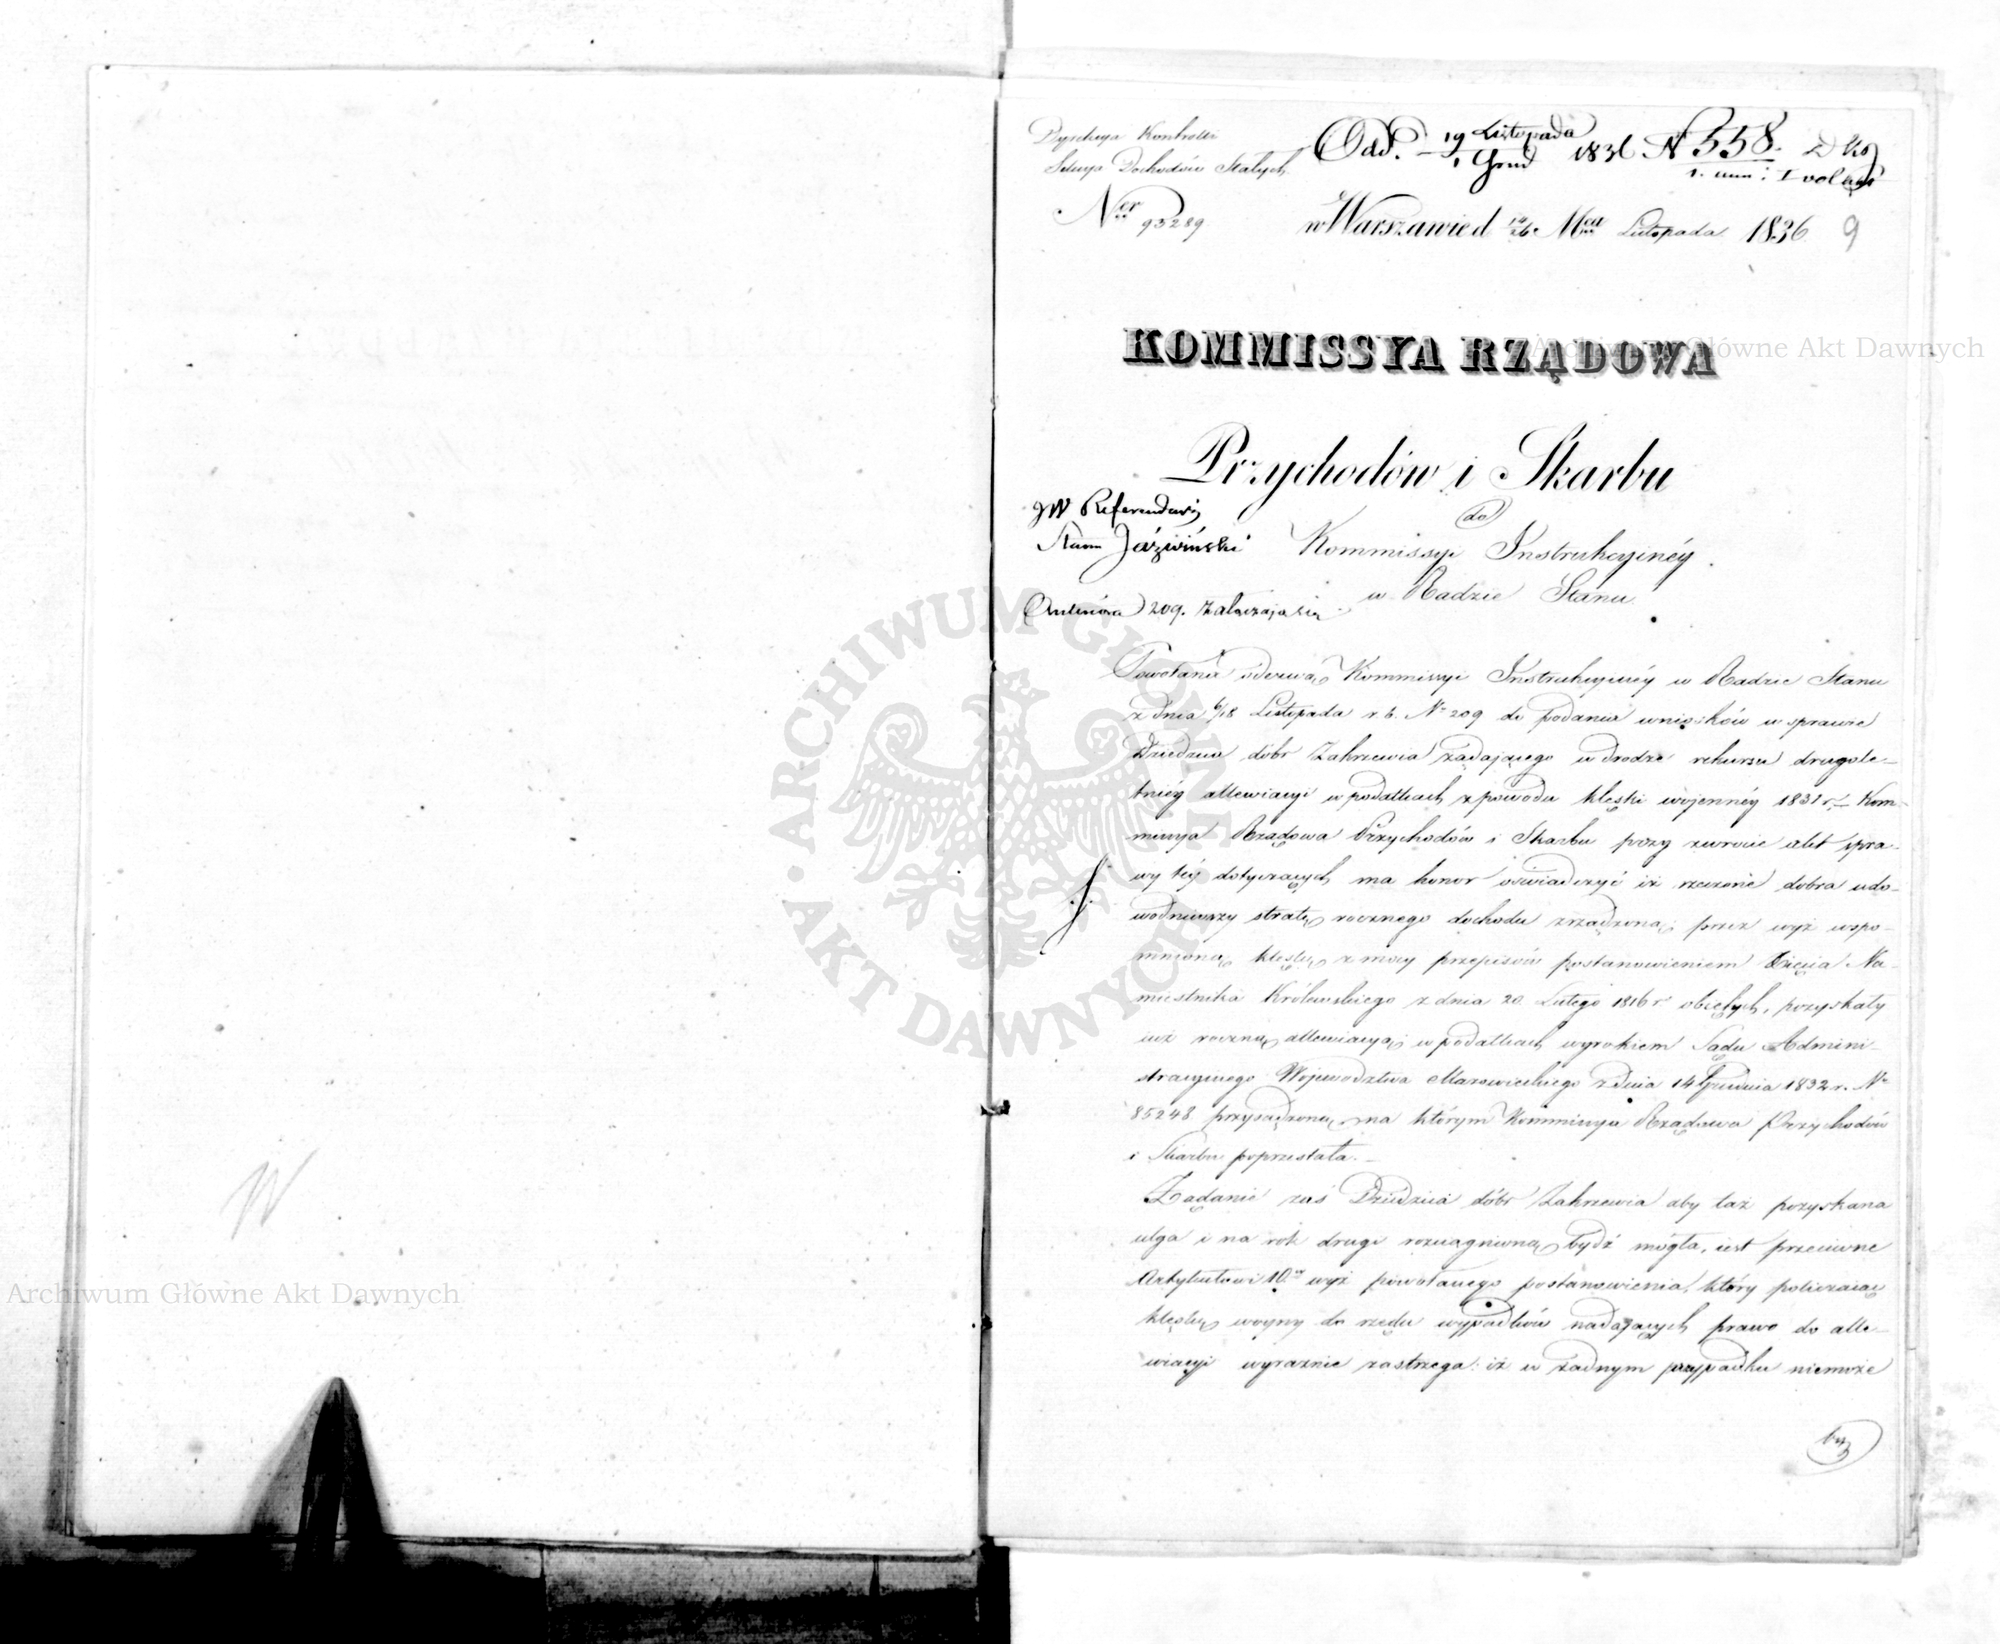 Dyrekcya Kontrolli
Sekcya Dochodów Stałych
Ner 93289
Odd. 19 Listopada / 1 Grud 1836 N 558.
w Warszawie d 14/26 Mca Listopada 1836
9
KOMMISSYA RZĄDOWA
Przychodów i Skarbu
do
JW Referendarz
Stanu Jaźwiński
Kommissyi Instrukcyinéy
w Radzie Stanu.
209. załączają się
Powołana odezwą Kommissyi Instrukcyinéy w Radzie Stanu
z dnia 6/18 Listopada r. b. No 209 do podania wniosków w sprawie
Dziedzica dóbr Zakrzewia żądającego w drodze rekursu drugole-
tniéy allewiacyi w podatkach z powodu klęski woiennéy 1831 r. Kom-
missya Rządowa Przychodów i Skarbu przy zwrocie akt spra-
wy téy dotyczących ma honor oświadczyć iż rzeczone dobra udo-
wodniwszy stratę rocznego dochodu zrządzoną przez wyż wspo-
mnioną klęskę z mocy przepisów postanowieniem Xięcia Na-
miestnika Królewskiego z dnia 20 Lutego 1816 r objętych, pozyskały
iuż roczną allewiacyą w podatkach wyrokiem Sądu Admini-
stracyinego Województwa Mazowieckiego z dnia 14 Grudnia 1832 r. No
85248 przysądzoną na którym Kommissya Rządowa Przychodów
i Skarbu poprzestała.
Żądanie zaś Dziedzica dóbr Zakrzewia aby taż pozyskana
ulga i na rok drugi rozciągnioną bydź mogła, iest przeciwne
Artykułowi 10 wyż powołanego postanowienia, który policzaiąc
klęskę woyny do rzędu wypadków nadaiących prawo do alle-
wiacyi wyraznie zastrzega: iż w żadnym przypadku niemoże
Archiwum Główne Akt Dawnych
Archiwum Główne Akt Dawnych
ARCHIWUM GŁÓWNE AKT DAWNYCH